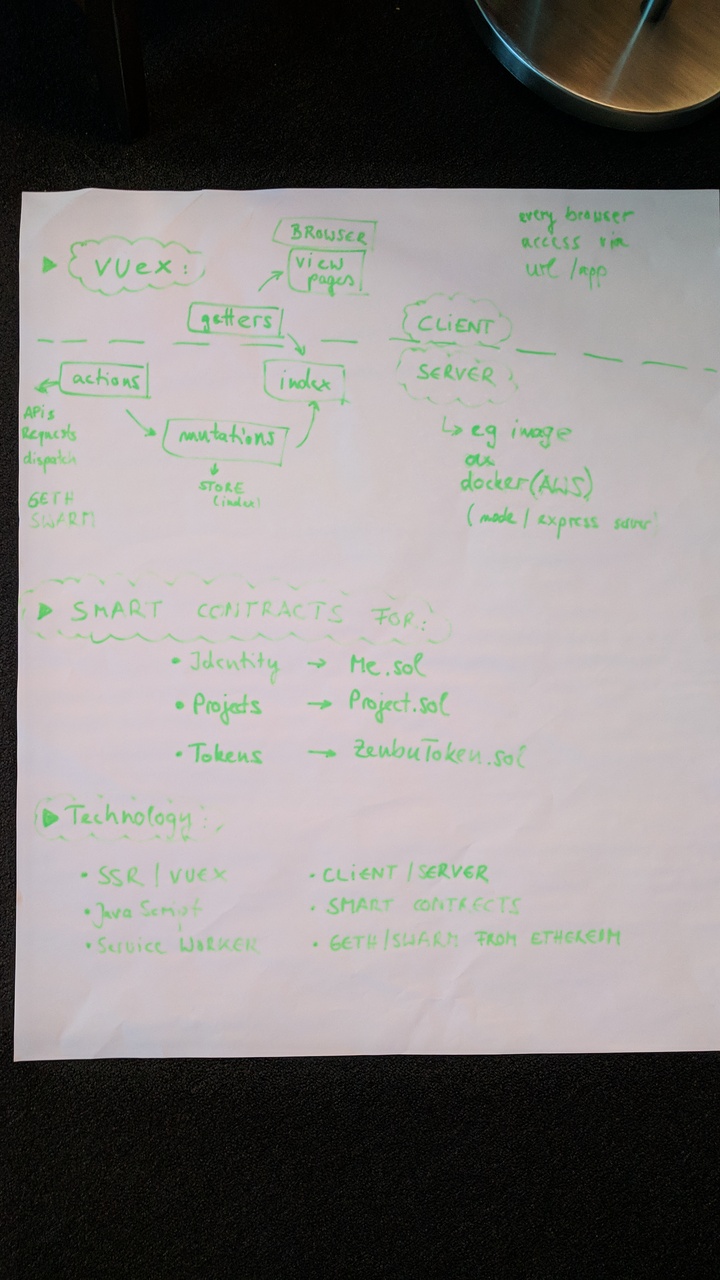 every browser
access via
url /app
BROWSER
view
pages
▶ VUEX:
getters
CLIENT
SERVER
actions
index
mutations
APIs
Requests
dispatch
GETH
SWARM
STORE
(index)
↳ eg image
on
docker (AWS)
(node / express server
▶ SMART CONTRACTS FOR:
• Identity → Me.sol
• Projects → Project.sol
• Tokens → ZenbuToken.sol
▶ Technology:
• SSR / VUEX • CLIENT / SERVER
• Java Script • SMART CONTRECTS
• Service WORKER • GETH/SWARM FROM ETHEREUM